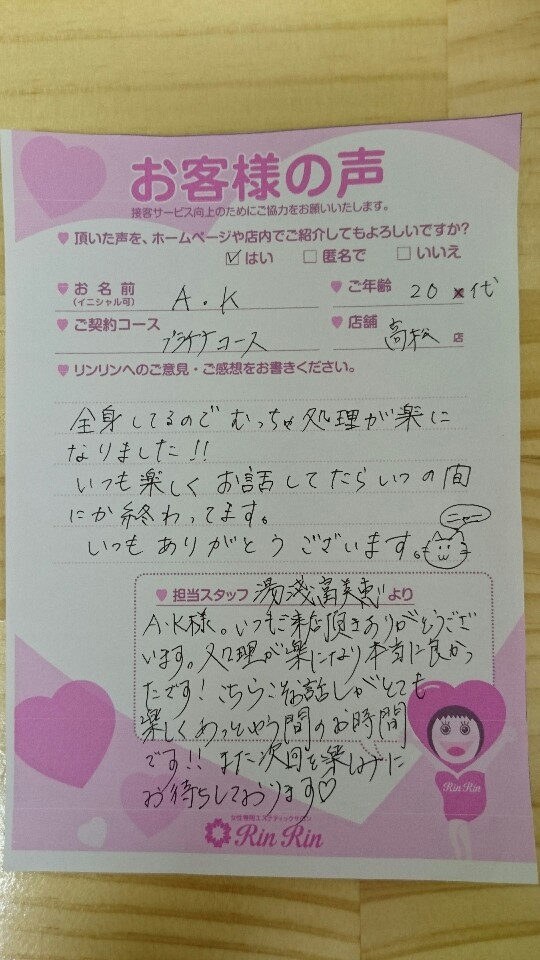 お客様の声
接客サービス向上のためにご協力をお願いいたします。
頂いた声を、ホームページや店内でご紹介してもよろしいですか?
はい 匿名で いいえ
お名前 A.K ご年齢 20 代
(イニシャル可)
ご契約コース プラチナコース 店舗 高松 店
リンリンへのご意見・ご感想をお書きください。
全身してるので むっちゃ処理が楽に
なりました!!
いつも楽しく お話してたらいつの間
にか終わってます。
いつも ありがとう ございます。
担当スタッフ 湯浅富美恵 より
A.K様。いつもご来店頂きありがとうござ
います。処理が楽になり本当に良かっ
たです! こちらこそお話しがとても
楽しくあっという間のお時間
です!! また次回を楽しみに
お待ちしております♡
Rin Rin
女性専用エステティックサロン
Rin Rin